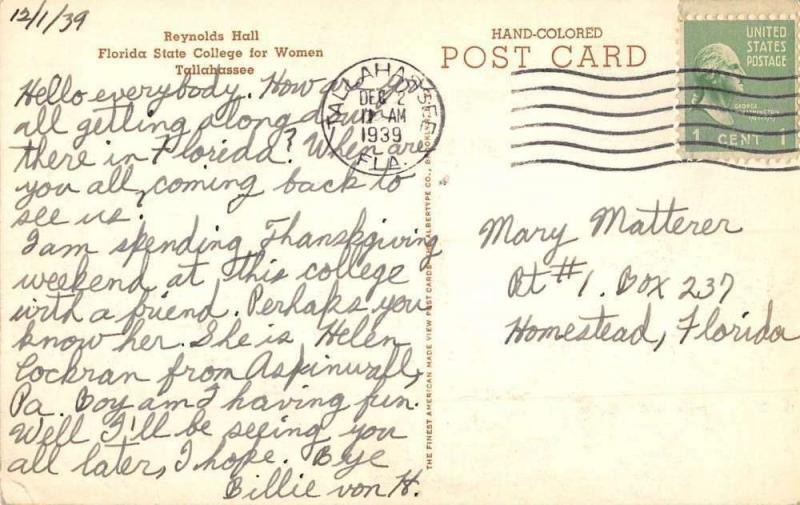 12/1/39
Reynolds Hall
Florida State College for Women
Tallahassee
HAND-COLORED
POST CARD
TALLAHASSEE
DEC 2
11 AM
1939
FLA.
UNITED
STATES
POSTAGE
GEORGE
WASHINGTON
1 CENT 1
Hello everybody. How are you
all getting along down
there in Florida? When are
you all, coming back to
see us.
I am spending Thanksgiving
weekend at this college
with a friend. Perhaps you
know her. She is Helen
Cockran from Aspinwall,
Pa. Boy am I having fun.
Well I'll be seeing you
all later, I hope. Bye
Billie von H.
THE FINEST AMERICAN MADE VIEW POST CARDS THE ALBERTYPE CO., BROOKLYN
Mary Matterer
Rt #1. Box 237
Homestead, Florida